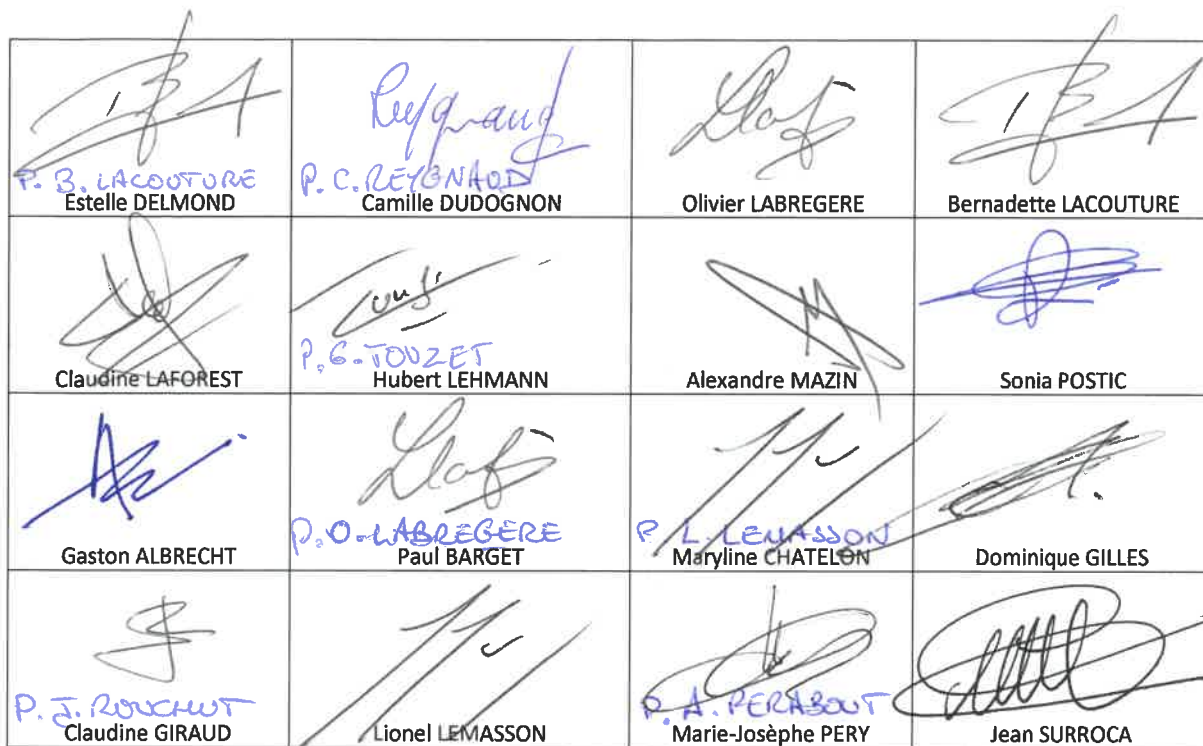 P. B. LACOUTURE
Estelle DELMOND
Reygnaud
P. C. REYGNAUD
Camille DUDOGNON
Olivier LABREGERE
Bernadette LACOUTURE
Claudine LAFOREST
P. G. TOUZET
Hubert LEHMANN
Alexandre MAZIN
Sonia POSTIC
Gaston ALBRECHT
P. O. LABREGERE
Paul BARGET
P. L. LEMASSON
Maryline CHATELON
Dominique GILLES
P. J. ROUCHUT
Claudine GIRAUD
Lionel LEMASSON
P. A. PERABOUT
Marie-Josèphe PERY
Jean SURROCA